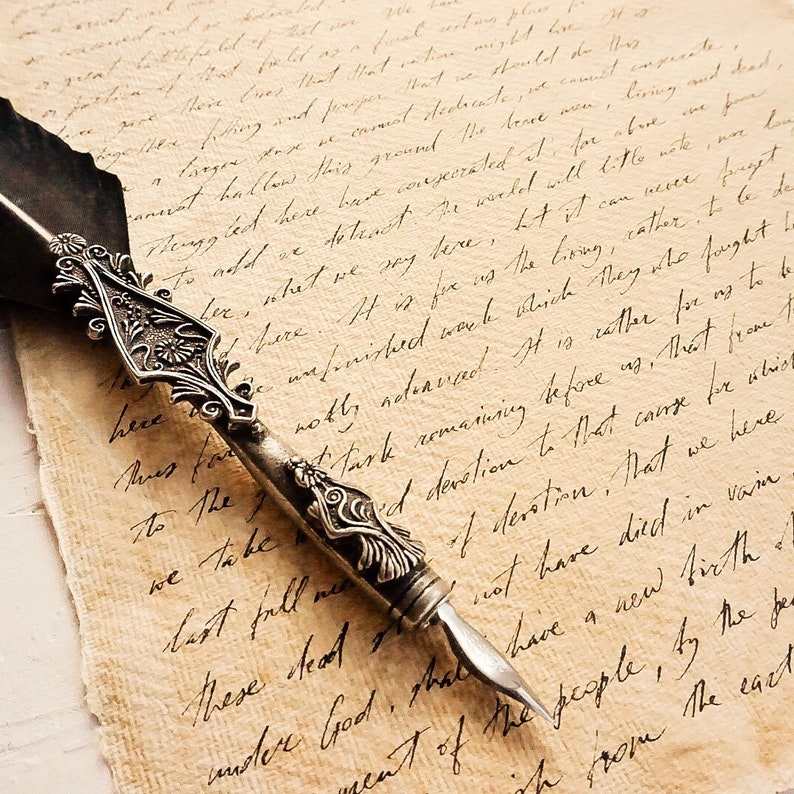 a great battlefield of that war. We have
a portion of that field as a final resting place for
here gave their lives that that nation might live. It is
altogether fitting and proper that we should do this
in a larger sense we cannot dedicate, we cannot consecrate,
cannot hallow this ground. The brave men, living and dead,
struggled here have consecrated it, far above our poor
to add or detract. The world will little note, nor long
what we say here, but it can never forget
here. It is for us the living, rather, to be de
here unfinished work which they who fought he
thus far nobly advanced. It is rather for us to be
to the task remaining before us, that from th
we take devotion to that cause for which
last full me of devotion, that we here
these dead not have died in vain
under God, shall have a new birth of
ment of the people, by the peo
from the earth